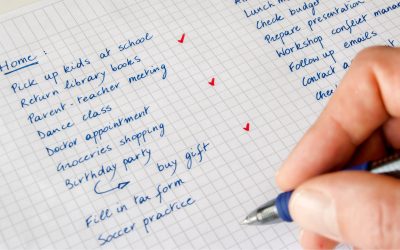 Home :
Pick up kids at school
Return library books
Parent-teacher meeting
Dance class
Doctor appointment
Groceries shopping
Birthday party
buy gift
Fill in tax form
Soccer practice
Lunch
Check budget
Prepare presentation
Workshop conflict
Follow up emails
Contact